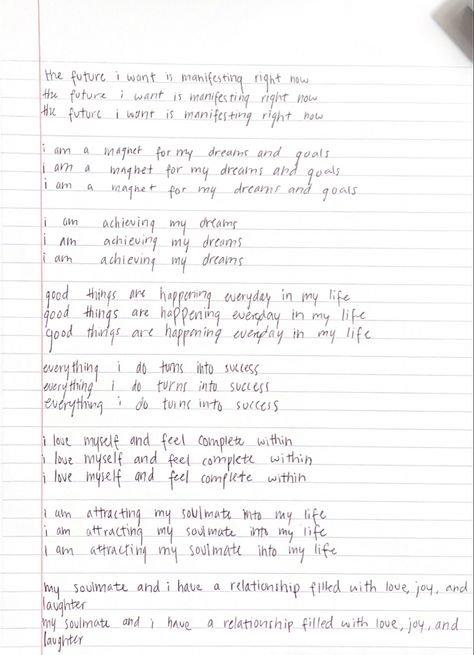 the future i want is manifesting right now
the future i want is manifesting right now
the future i want is manifesting right now
i am a magnet for my dreams and goals
i am a magnet for my dreams and goals
i am a magnet for my dreams and goals
i am achieving my dreams
i am achieving my dreams
i am achieving my dreams
good things are happening everyday in my life
good things are happening everyday in my life
good things are happening everyday in my life
everything i do turns into success
everything i do turns into success
everything i do turns into success
i love myself and feel complete within
i love myself and feel complete within
i love myself and feel complete within
i am attracting my soulmate into my life
i am attracting my soulmate into my life
i am attracting my soulmate into my life
my soulmate and i have a relationship filled with love, joy, and
laughter
my soulmate and i have a relationship filled with love, joy, and
laughter